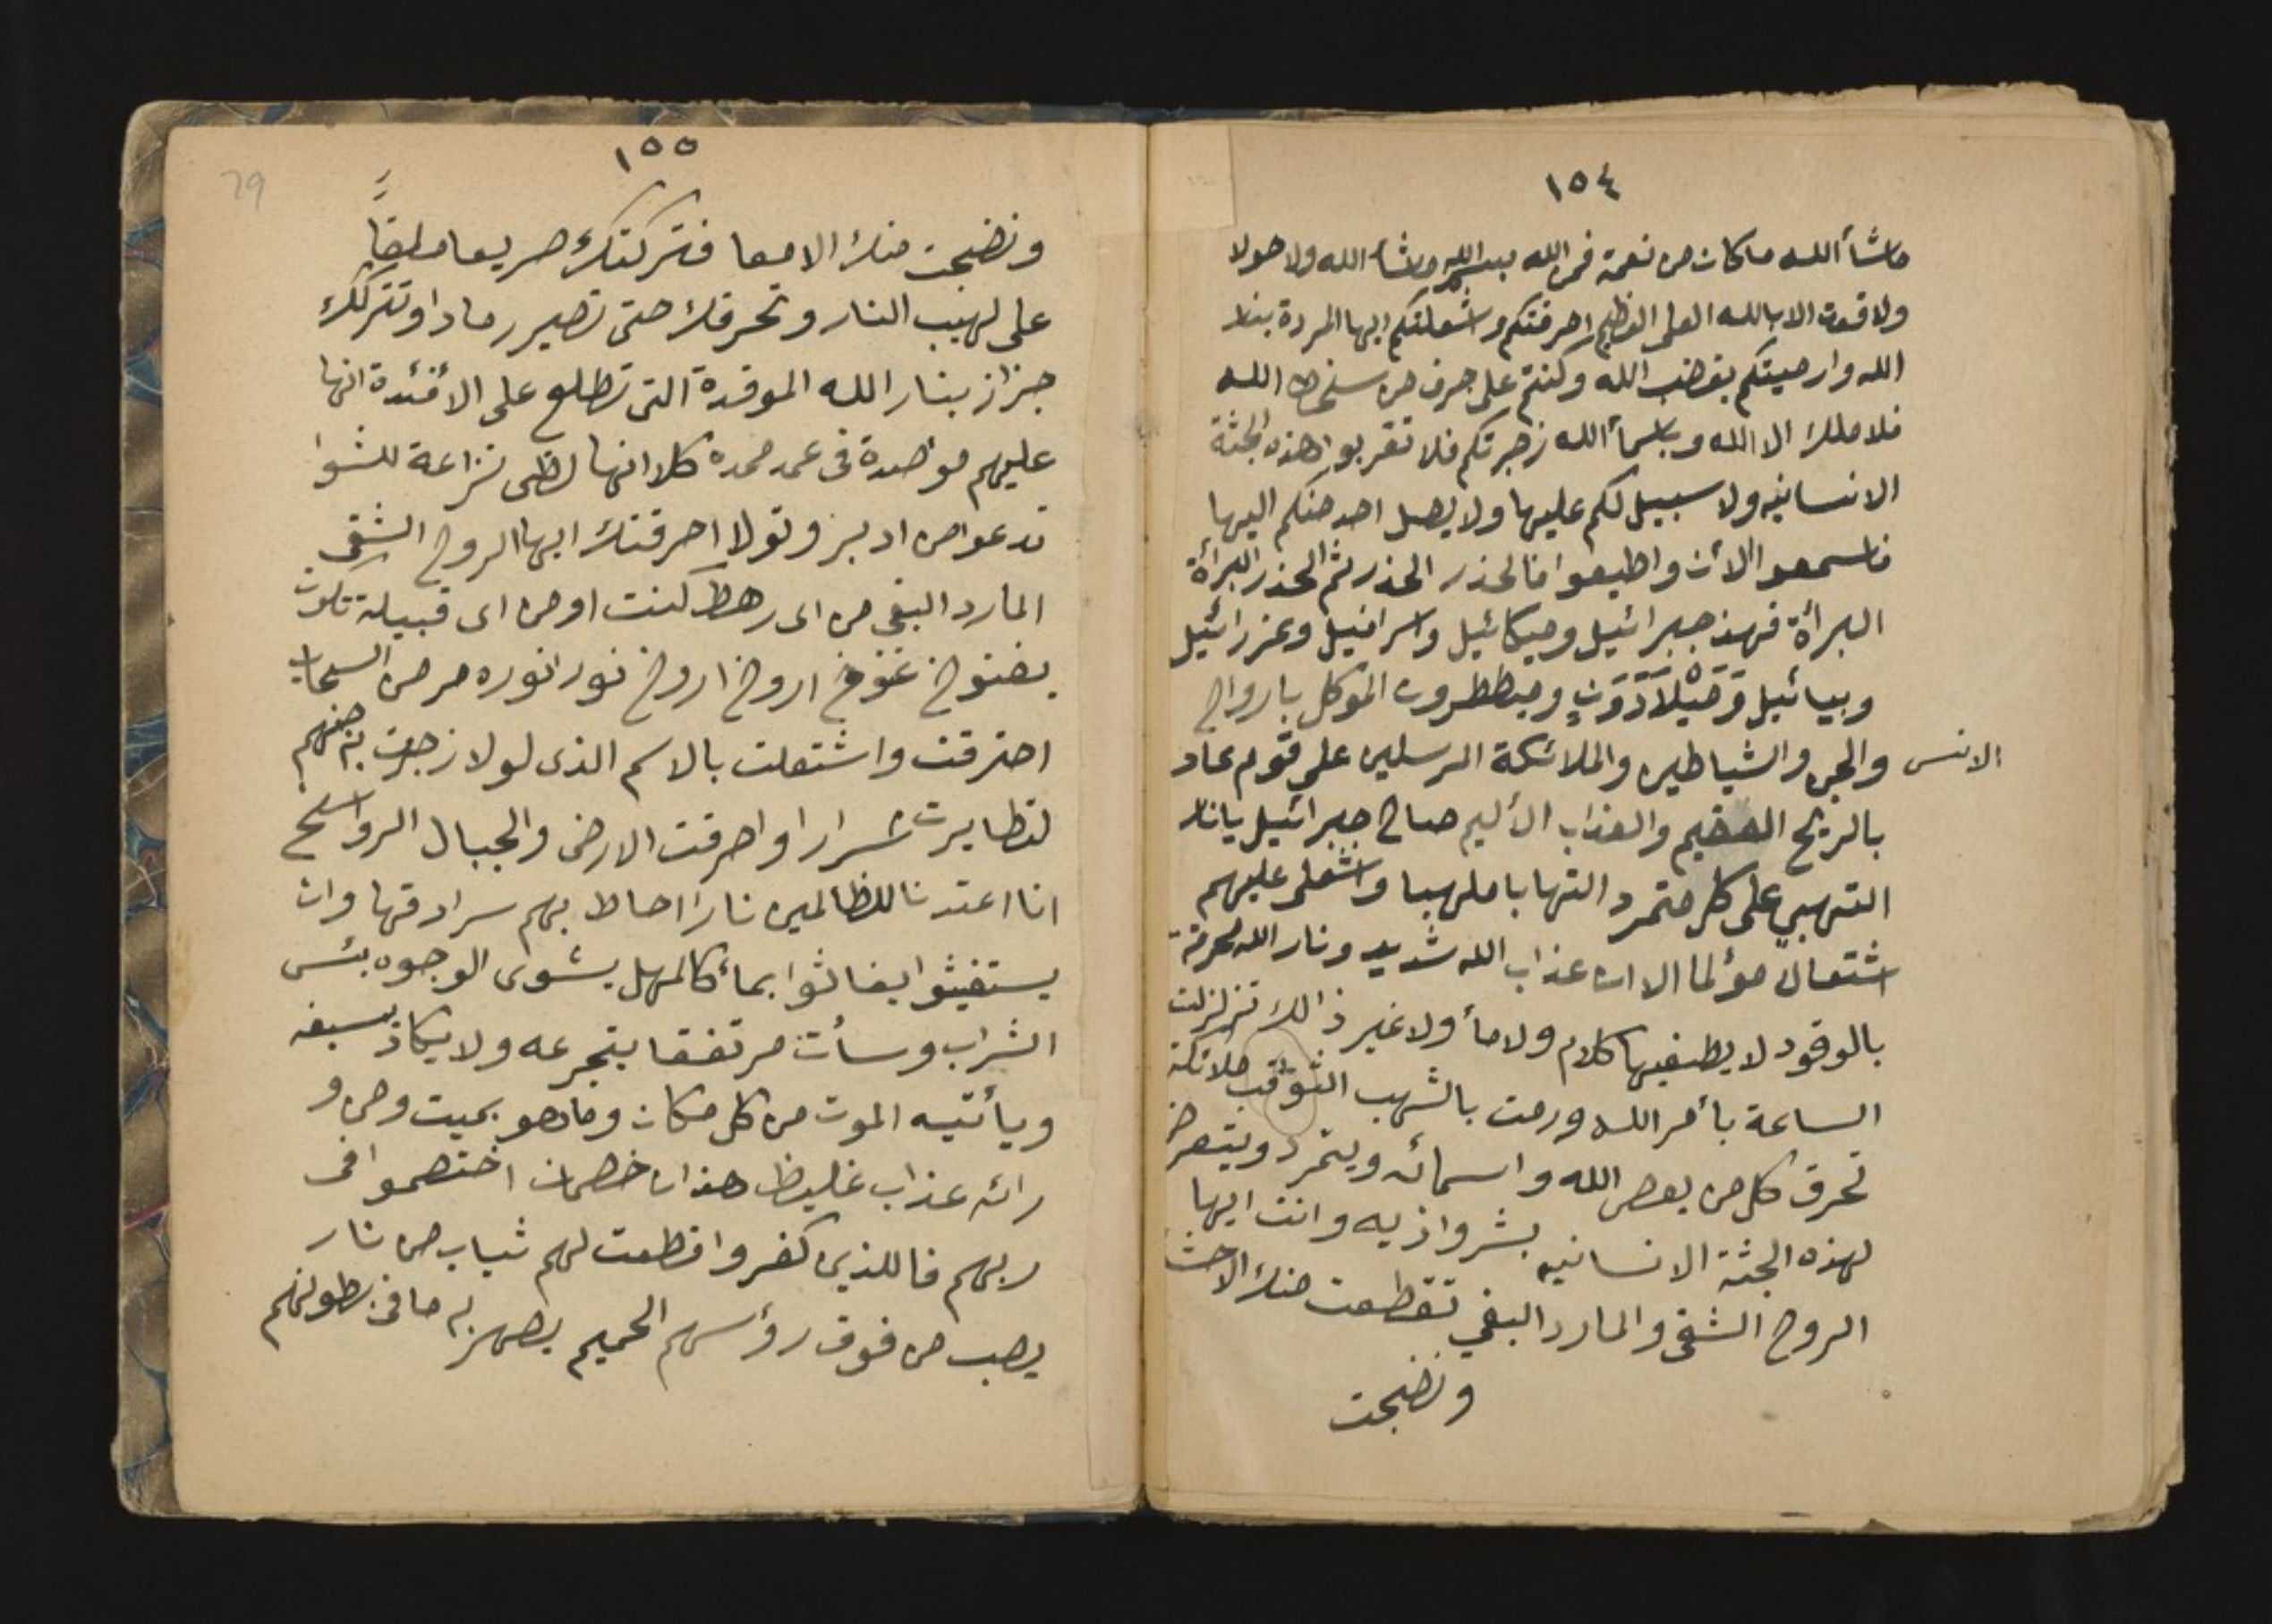 ١٥٤
ماشأ الله ما كان من نعمة فمن الله بسم الله ماشأ الله ولا حولا
ولا قوت الا بالله العلى العظيم احرقتكم واشعلتكم ايها المردة بنار
الله وارميتكم بغضب الله وكنتم على جرف من سخط الله
فلا ملك الا الله وباسمأ الله زجرتكم فلا تقربوا هذه الجثة
الانسانيه ولا سبيل لكم عليها ولا يصل احد منكم اليها
فاسمعوا الأن واطيعوا فالحذر الحذر ثم الحذر البرأة
البرأة فهذ جبرائيل وميكائيل واسرافيل وعزرائيل
وبيائيل وميططرون الموكل بارواح
الانس والجن والشياطين والملائكة المرسلين على قوم عاد
بالريح العقيم والعذاب الأليم صاح جبرائيل يانار
التهبي على كل متمرد التهابا ملهبا واشعلى عليهم
اشتعالا مؤلما الا ان عذاب الله شديد ونار الله محرقة
بالوقود لا يطفيها كلام ولا مأ ولا غير ذالك تزلزلت
الساعة بأمر الله ورمت بالشهب الثوقب ملائكة
تحرق كل من يعص الله واسمائه ويتمرد ويتعرض
لهذه الجثة الانسانيه بشر واذيه وانت ايها
الروح الشقى والمارد البغي تقطعت منك الاحشا
ونضجت
١٥٥
29
ونضجت منك الامعا فتركتك صريعا ملقياً
على لهيب النار وتحرقك حتى تصير رمادا وتتركك
جزاز بنار الله الموقدة التى تطلع على الأفئدة انها
عليهم مواصدة فى عمد ممده كلا انها لظى نزاعة للشوا
تدعوا من ادبر وتولا احرقتك ايها الروح الشقى
المارد البغى من اى رهط كنت او من اى قبيلة تكون
بغنوخ غنوخ اروخ اروخ نور انوره مر من السحاب
احترقت واشتعلت بالاسم الذى لولا زجرت به جهنم
لتطايرت شرارا واحرقت الارض والجبال الرواسخ
انا اعتدنا للظالمين نارا احاط بهم سرادقها وان
يستغيثوا يغاثوا بمأ كالمهل يشوى الوجوه بئس
الشراب وسأت مرتفقا يتجرعه ولا يكاد يسيغه
ويأتيه الموت من كل مكان وماهو بميت ومن و
رائه عذاب غليظ هذان خصمان اختصموا فى
ربهم فاللذين كفروا قطعت لهم ثياب من نار
يصب من فوق رؤسهم الحميم يصهر به ما فى بطونهم